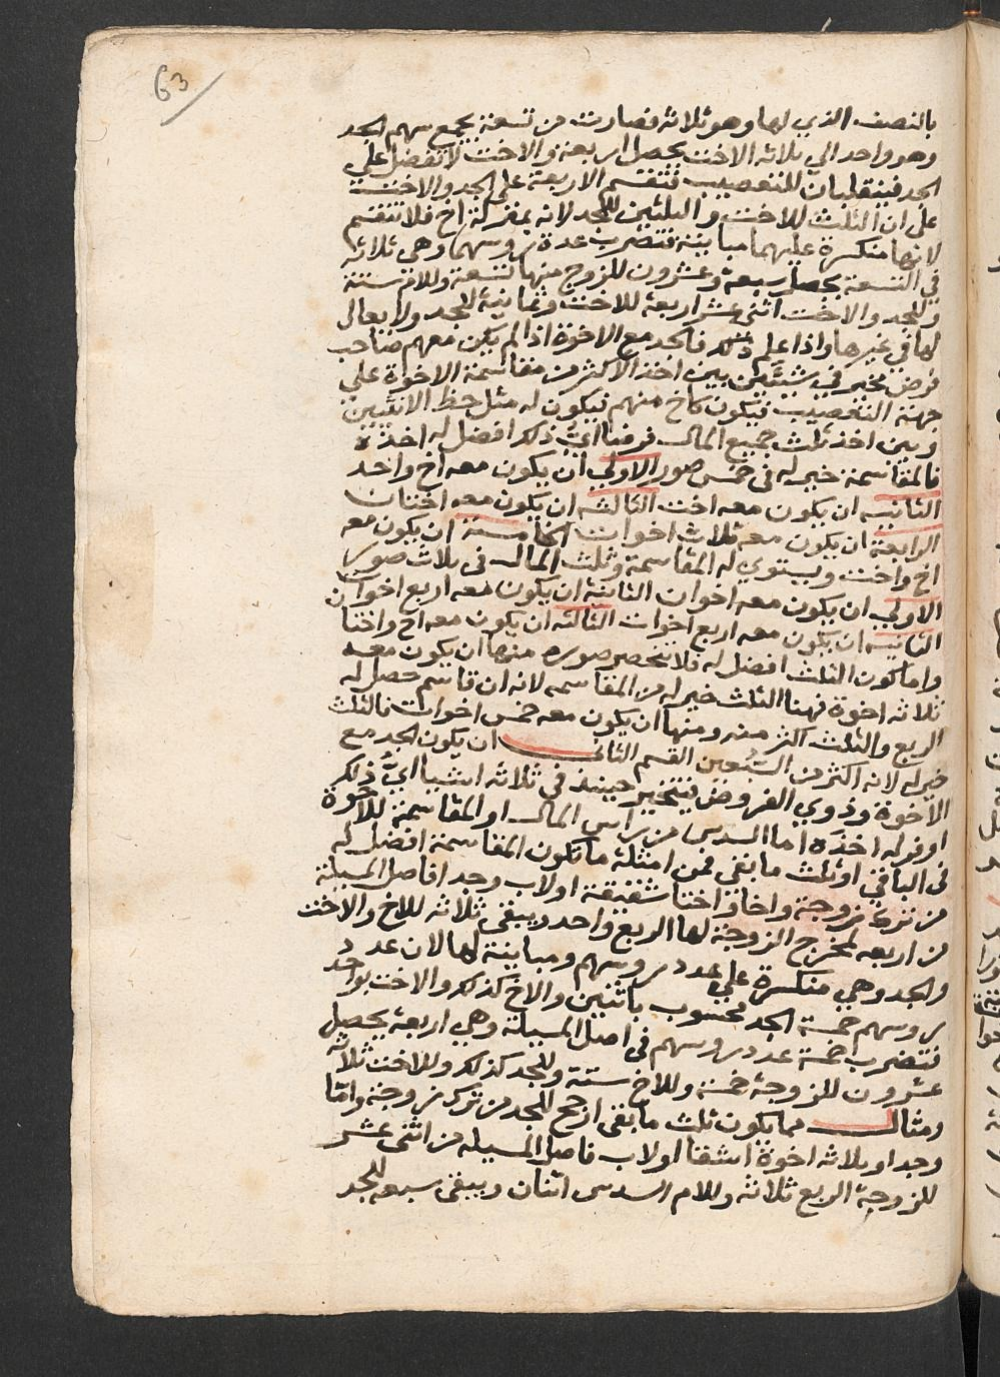 63
بالنصف الذي لها وهو ثلاثه فصارت من تسعة يجمع سهم الجد
وهو واحد الي ثلاثه الاخت يحصل اربعة والاخت لا تفضل علي
الجد فينقلبان للتعصيب فتقسم الاربعة علي الجد والاخت
علي ان الثلث للاخت والثلثين للجد لانه بمنزلة اخ فلا تنقسم
لانها منكسرة عليهما مباينة فتضرب عدة روسهما وهي ثلاثه
في التسعة يحصل سبعة وعشرون للزوج منها تسعة وللام ستة
وللجد والاخت اثني عشر اربعة للاخت وثمانية للجد ولا يعال
لها في غيرها واذا علم ذلك فالجد مع الاخوة اذا لم يكن معهم صاحب
فرض مخير في شيئين بين اخذ الاكثر من مقاسمة الاخوة علي
جهة التعصيب فيكون كاخ منهم فيكون له مثل حظ الانثيين
وبين اخذ ثلث جميع المال فرضا اي ذلك افضل له اخذه
فالمقاسمة خير له في خمس صور الاولي ان يكون معه اخ واحد
الثانيه ان يكون معه اخت الثالثه ان يكون معه اختان
الرابعة ان يكون معه ثلاث اخوات الخامسة ان يكون معه
اخ واخت ويستوي له المقاسمة وثلث المال في ثلاث صور
الاولي ان يكون معه اخوان الثانية ان يكون معه اربع اخوات
الثانيه ان يكون معه اربع اخوات الثالثه ان يكون معه اخ واختان
واما كون الثلث افضل له فلا تنحصر صوره منها ان يكون معه
ثلاثه اخوة فهنا الثلث خير له من المقاسمه لانه ان قاسم حصل له
الربع والثلث اكثر منه ومنها ان يكون معه خمس اخوات فالثلث
خير له لانه اكثر من السبعين القسم الثاني ان يكون الجد مع
الاخوة وذوي الفروض فيتخير حينئذ في ثلاثه اشيا اي ذلك
اوفر له اخذه اما السدس من راس المال او المقاسمة للاخوة
في الباقي او ثلث ما بقي فمن امثلة ما تكون المقاسمة افضل له
من ترك زوجة واخا واختا شقيقة او لاب وجد افاصل المسيلة
من اربعه لمخرج الزوجة لها الربع واحد ويبقي ثلاثه للاخ والاخت
والجد وهي منكسرة علي عدد روسهم ومباينة لها لان عدد
روسهم خمسة الجد محسوب باثنين والاخ كذلك والاخت بواحد
فتضرب خمسة عدد روسهم في اصل المسيلة وهي اربعة يحصل
عشرون للزوجة خمسة وللاخ ستة وللجد كذلك وللاخت ثلاثه
ومثال مما يكون ثلث ما بقي ارجح للجد من ترك زوجة واما
وجدا وثلاثه اخوة اشقا او لاب فاصل المسيله من اثني عشر
للزوجة الربع ثلاثه وللام السدس اثنان ويبقي سبعه للجد